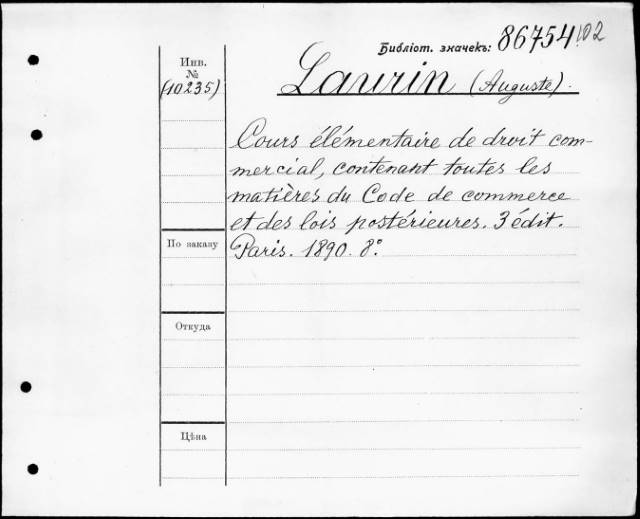 Библіот. значекъ: 86754/102
Инв.
№
(10235)
Laurin (Auguste).
Cours élémentaire de droit com-
mercial, contenant toutes les
matières du Code de commerce
et des lois postérieures. 3 édit.
Paris. 1890. 8°.
По заказу
Откуда
Цѣна